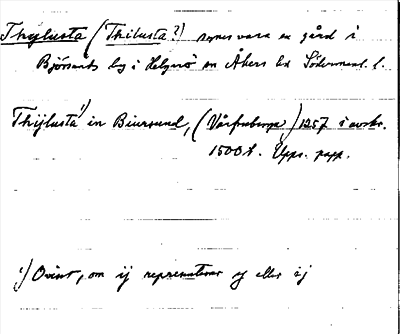 Thijlusta (Thilusta?) synes vara en gård i
Björsunds by i Helgarö sn Åkers hd Södermanl. l.
Thijlusta¹⁾ in Biursund, (Vårfruberga) 1257 i avskr.
1500 t. Upps. papp.
¹⁾ Ovisst, om ij representerar y eller ij